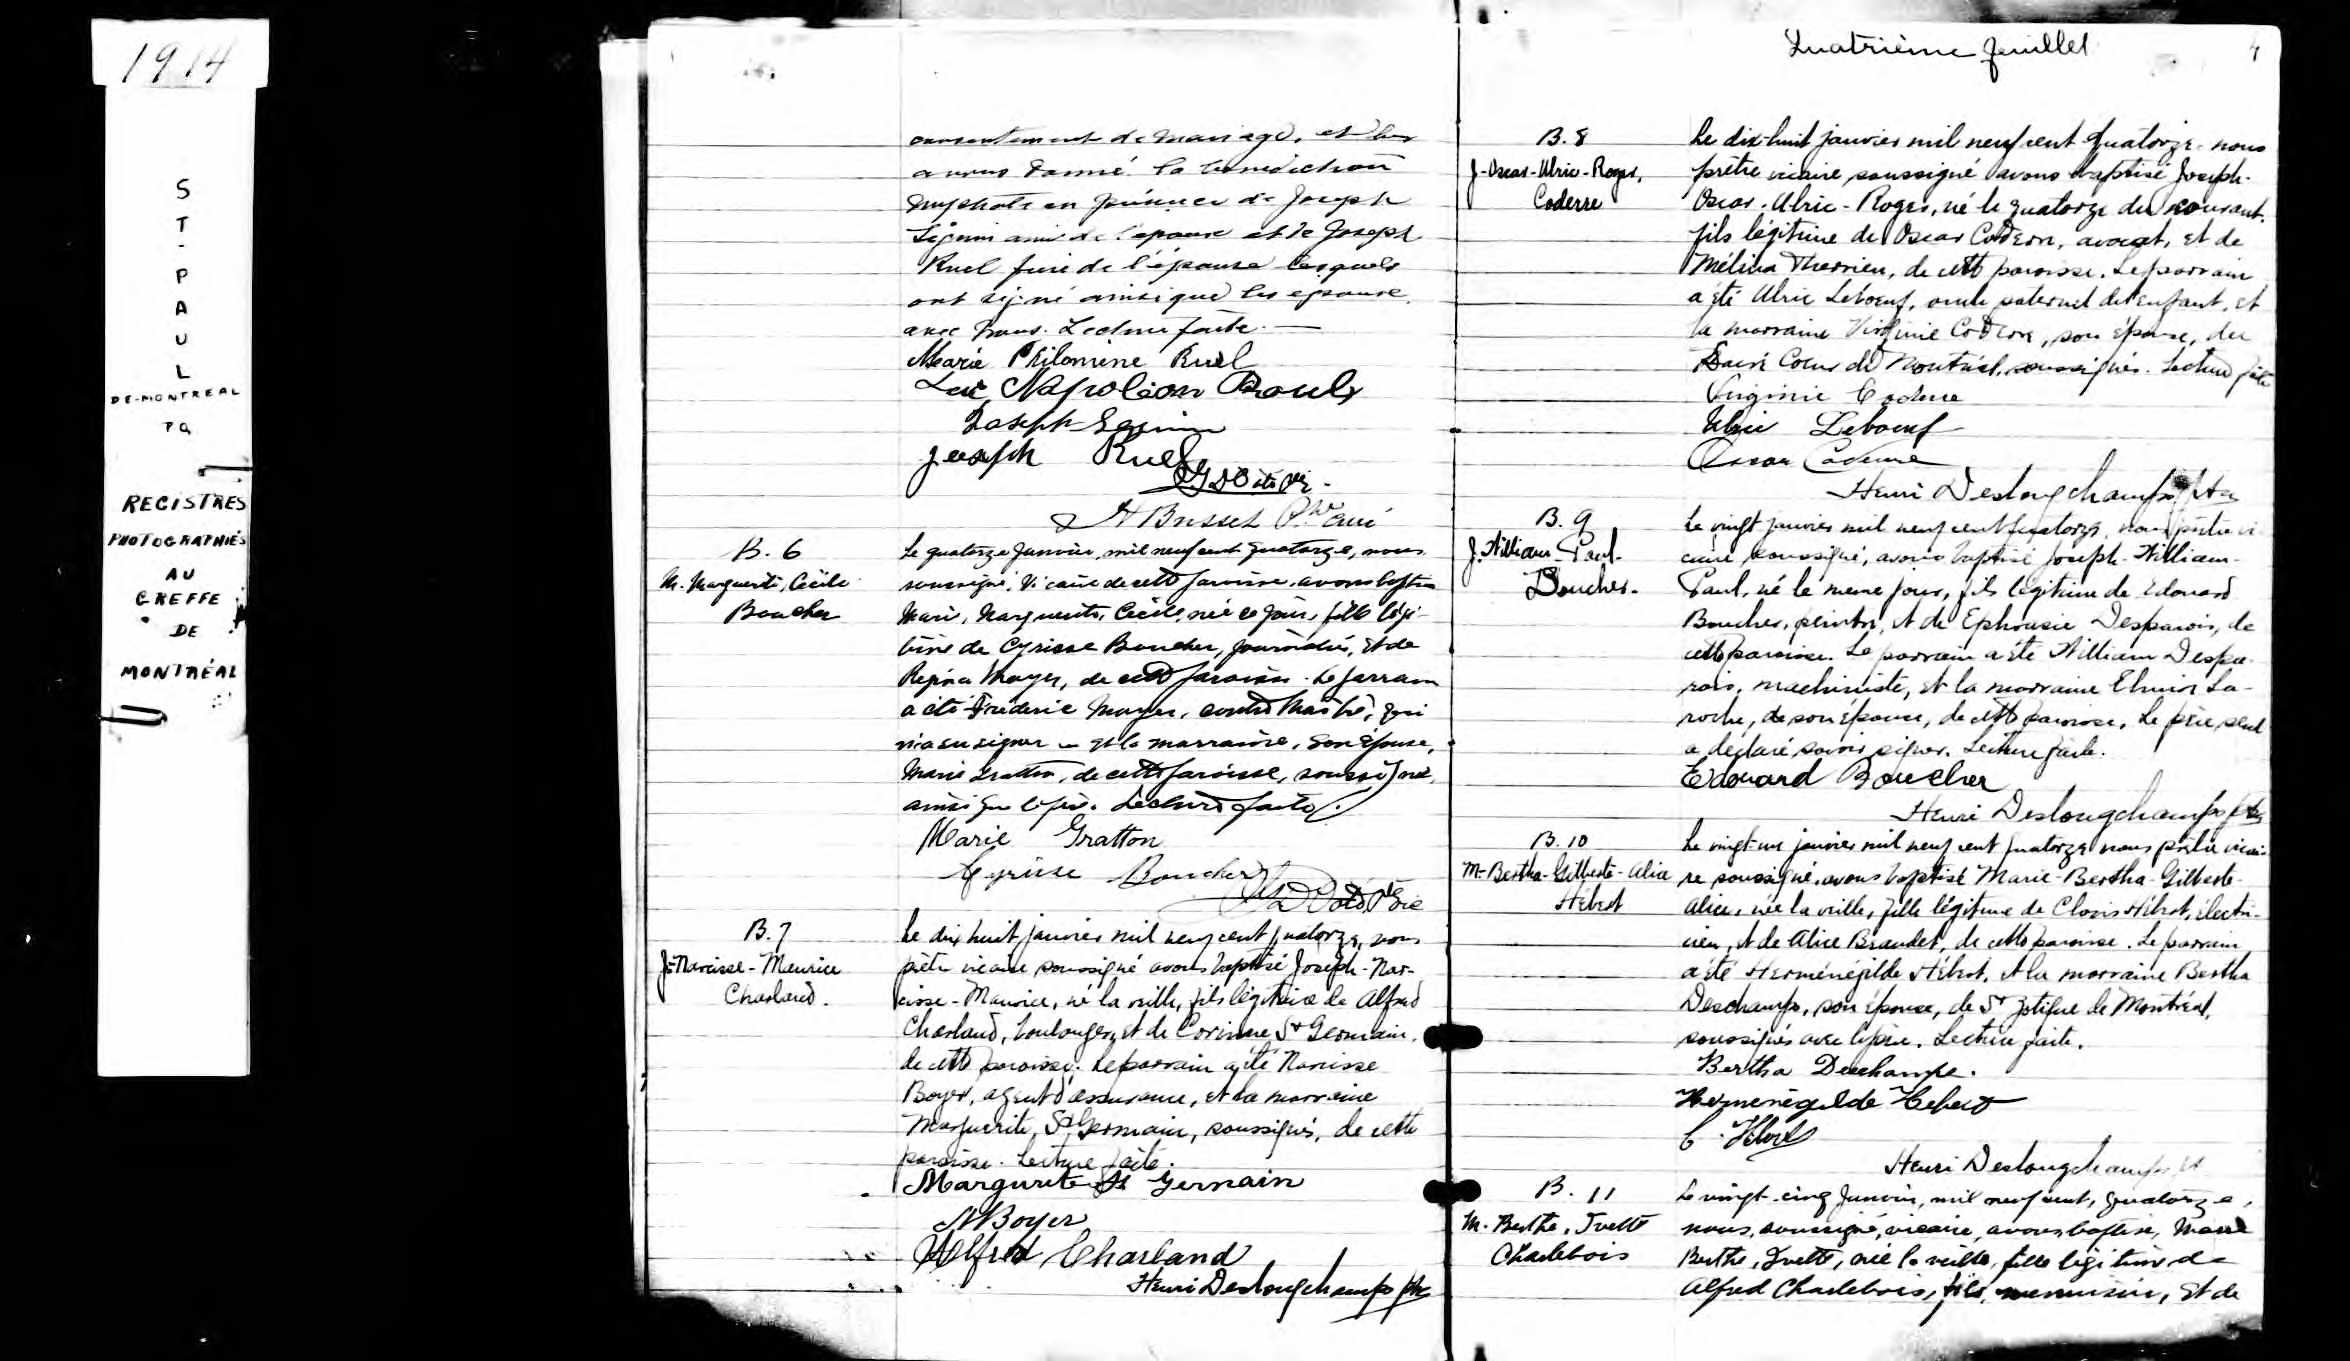 1914
ST-PAUL
DE-MONTREAL
PQ
REGISTRES
PHOTOGRAPHIÉS
AU
GREFFE
DE
MONTRÉAL
consentement de mariage, et leur
avons donné la bénédiction
nuptiale en présence de Joseph
Séguin ami de l'époux et de Joseph
Ruel père de l'épouse lesquels
ont signé ainsi que les époux
avec nous. Lecture faite.
Marie Philomène Ruel
Luc Napoléon
Joseph Seguin
Joseph Ruel
Ptre curé
B. 6
M. Marguerite, Cécile
Boucher
Le quatorze Janvier, mil neuf cent quatorze, nous
soussigné, Vicaire de cette paroisse, avons baptisé
Marie, Marguerite, Cécile, née ce jour, fille légi-
time de Cyrisse Boucher, journalier, et de
Régina Mayer, de cette paroisse. Le parrain
a été Frédéric Mayer, contremaître, qui
n'a su signer et la marraine, son épouse,
Marie Gratton, de cette paroisse, soussigné,
ainsi que le père. Lecture faite.
Marie Gratton
Cyrisse Boucher
B. 7
J-Narcisse-Maurice
Charland.
Le dix huit janvier mil neuf cent quatorze, nous
prêtre vicaire soussigné avons baptisé Joseph-Nar-
cisse-Maurice, né la veille, fils légitime de Alfred
Charland, boulanger, et de Corinne St Germain,
de cette paroisse. Le parrain a été Narcisse
Boyer, agent d'assurance, et la marraine
Marguerite St Germain, soussignés, de cette
paroisse. Lecture faite.
Margurite St Germain
N Boyer
Alfred Charland
Henri Deslongchamps ptr
Quatrième feuillet
4
B. 8
J-Oscar-Ulric-Roger,
Coderre
Le dix-huit janvier mil neuf cent quatorze nous
prêtre vicaire soussigné avons baptisé Joseph-
Oscar-Ulric-Roger, né le quatorze du courant,
fils légitime de Oscar Coderre, avocat, et de
Mélina Therrien, de cette paroisse. Le parrain
a été Ulric Leboeuf, oncle paternel de l'enfant, et
la marraine Virginie Coderre, son épouse, du
Sacré Coeur de Montréal, soussignés. Lecture faite
Virginie Coderre
Ulric Leboeuf
Oscar Coderre
Henri Deslongchamps ptr
B. 9
J. William-Paul-
Boucher.
Le vingt janvier mil neuf cent quatorze, nous prêtre vi-
caire soussigné, avons baptisé Joseph-William-
Paul, né le même jour, fils légitime de Edouard
Boucher, peintre, et de Ephrosie Desparois, de
cette paroisse. Le parrain a été William Despa-
rois, machiniste, et la marraine La-
roche, de son épouse, de cette paroisse. Le père seul
a déclaré savoir signer. Lecture faite.
Edouard Boucher
Henri Deslongchamps ptr
B. 10
M-Bertha-Gilberte-Alice
Hébert
Le vingt-un janvier mil neuf cent quatorze nous prêtre vicai-
re soussigné, avons baptisé Marie-Bertha-Gilberte-
Alice, née la veille, fille légitime de Clovis Hébert, électri-
cien, et de Alice Beaudet, de cette paroisse. Le parrain
a été Herménégilde Hébert, et la marraine Bertha
Deschamps, son épouse, de St Zotique de Montréal,
soussignés avec le père. Lecture faite.
Bertha Deschamps.
Herménégilde Hebert
C. Hébert
Henri Deslongchamps pt
B. 11
M. Berthe, Ivette
Charlebois
Le vingt-cinq Janvier, mil neuf cent, quatorze,
nous, soussigné, vicaire, avons baptisé, Marie
Berthe, Ivette, née la veille, fille légitime de
Alfred Charlebois, fils, menuisier, et de